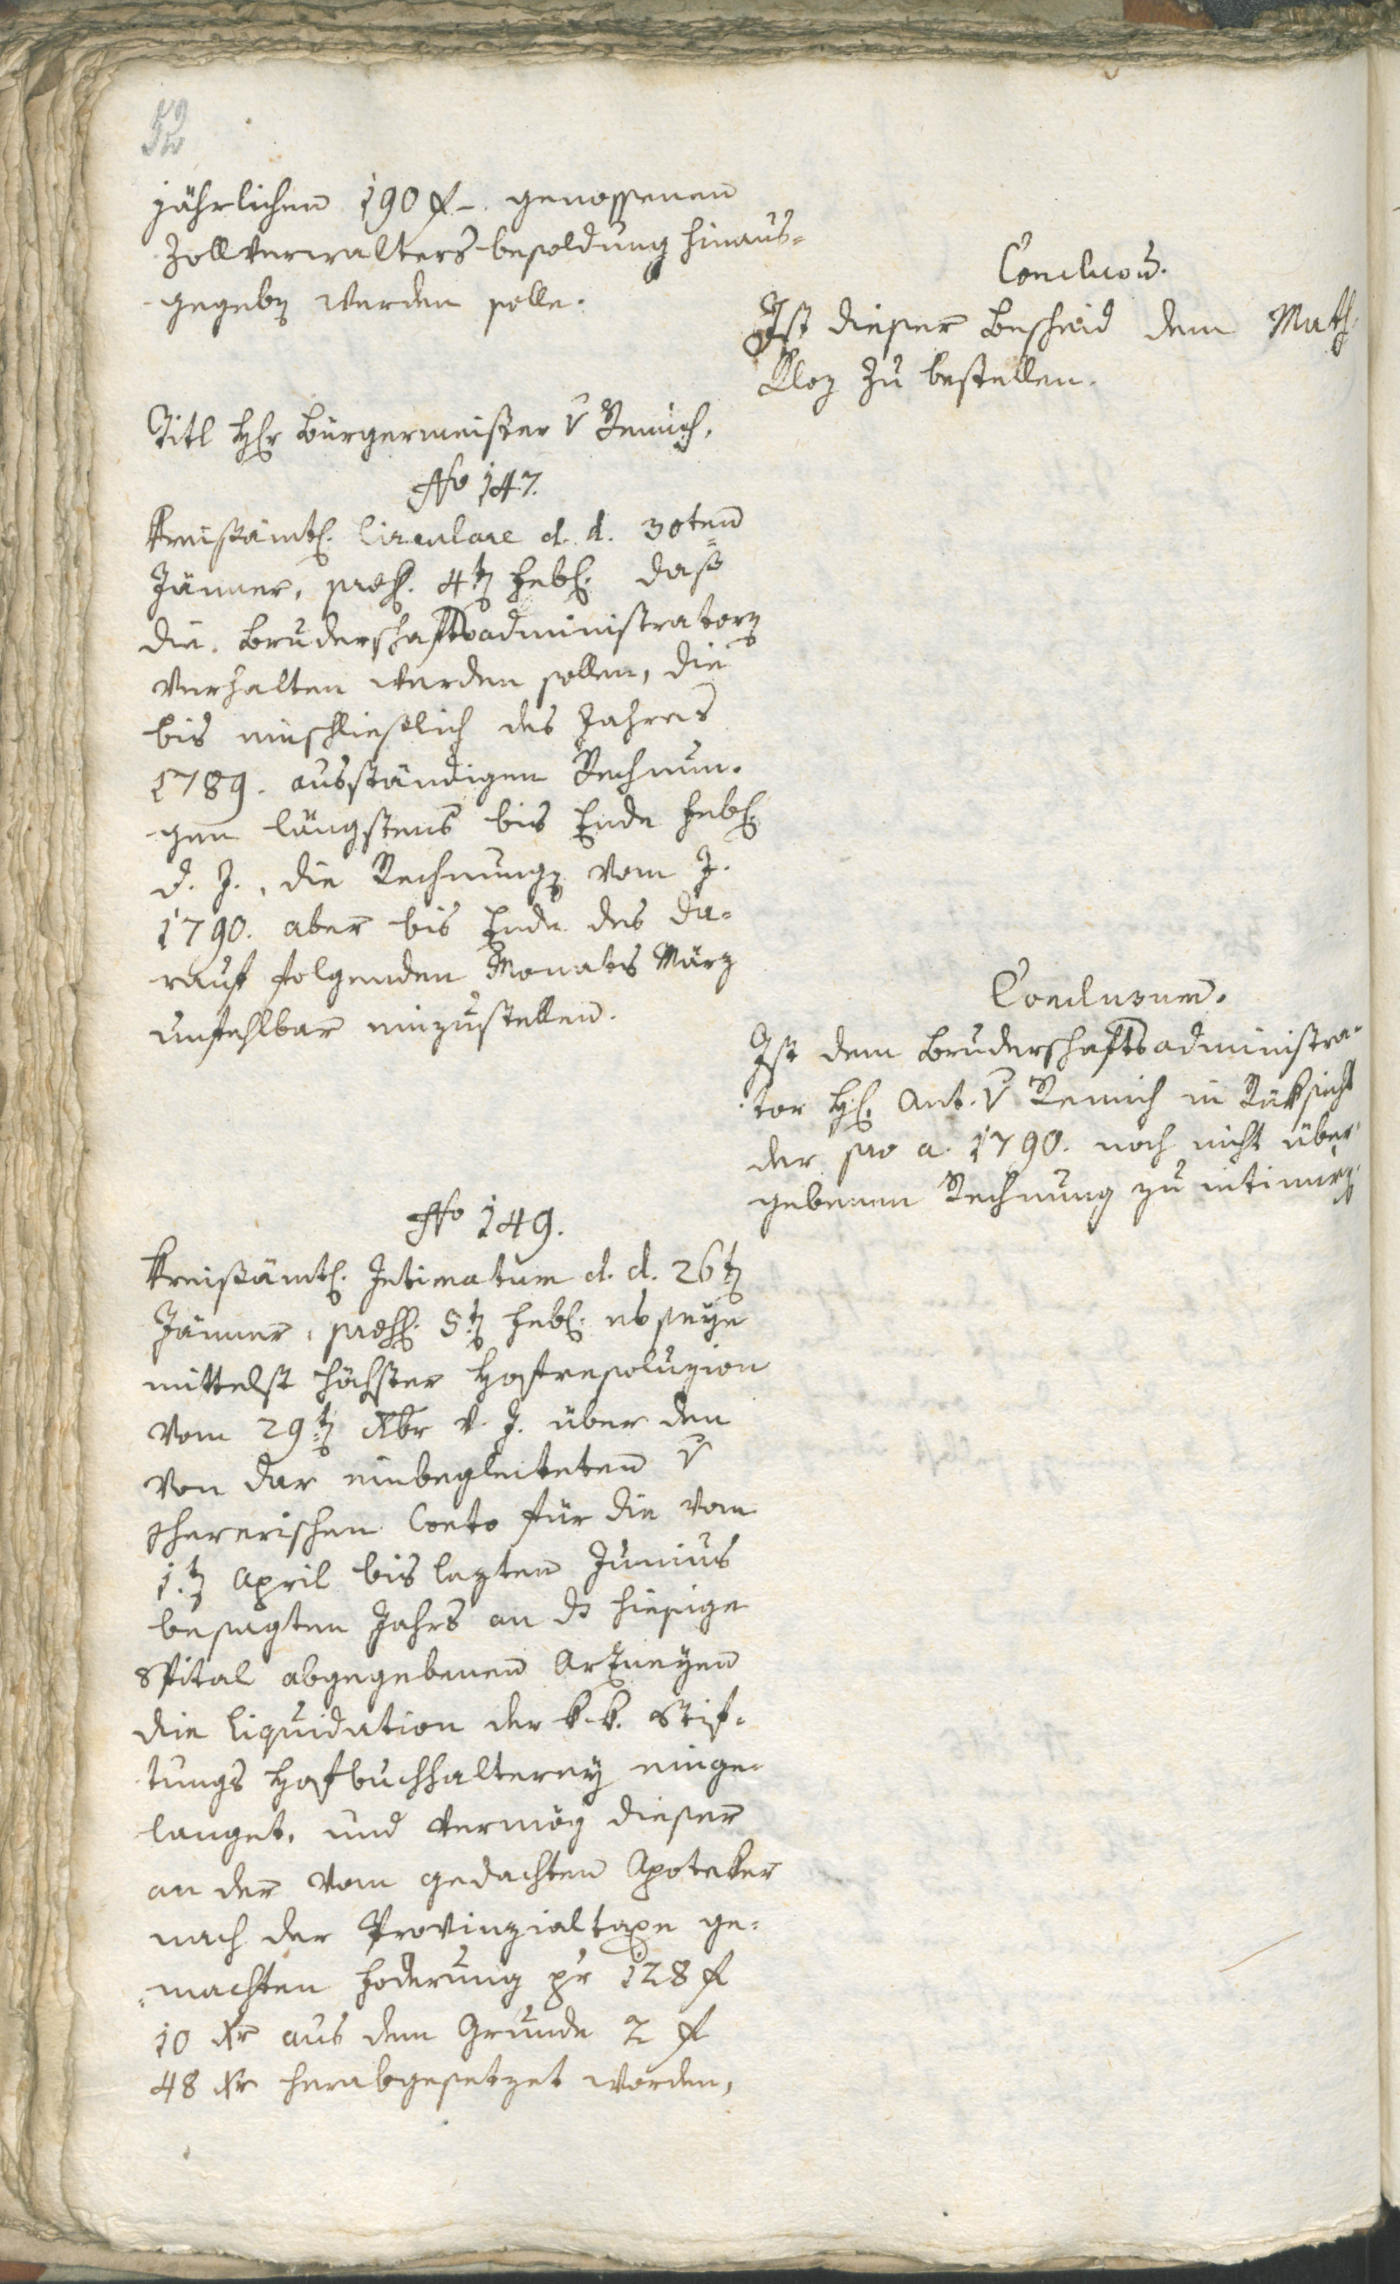 52
jährlichen 190 f –. genossenen
Zollverwalters-besoldung hinaus=
gegeben werden solle.
Conclusum.
Ist dieser Bescheid dem Math.
Kloz zu bestellen.
Titl Hr Bürgermeister v Remich.
No 147.
Kreisämtl. Circulare d. d. 30ten
Jänner, præs. 4ten Feb. daß
die Bruderschaftsadministratoren
verhalten werden sollen, die
bis einschließlich des Jahres
1789. ausständigen Rechnun=
gen längstens bis Ende Feb.
d. J., die Rechnungen vom J.
1790. aber bis Ende des da=
rauf folgenden Monats März
unfehlbar einzustellen.
Conclusum.
Ist dem Bruderschaftsadministra=
tor H. Ant. v Remich in Rüksicht
der pro a. 1790. noch nicht über=
gebenen Rechnung zu intimiren.
No 149.
Kreisämtl. Intimatum d. d. 26ten
Jänner, præs. 5ten Feb. es seye
mittelst höchster Hofresoluzion
vom 29ten Xbr v. J. über den
von dar einbegleiteten v
Shererischen Conto für die vom
1ten April bis lezten Junius
besagten Jahrs an ds hiesige
Spital abgegebenen Arzneyen
die Liquidation der k. k. Stif=
tungs Hofbuchhalterey einge=
langet, und vermög dieser
an der vom gedachten Apoteker
nach der Provinzialtaxe ge=
machten Foderung pr 128 f
10 Xr aus dem Grunde 2 f
48 Xr herabgesetzet worden,